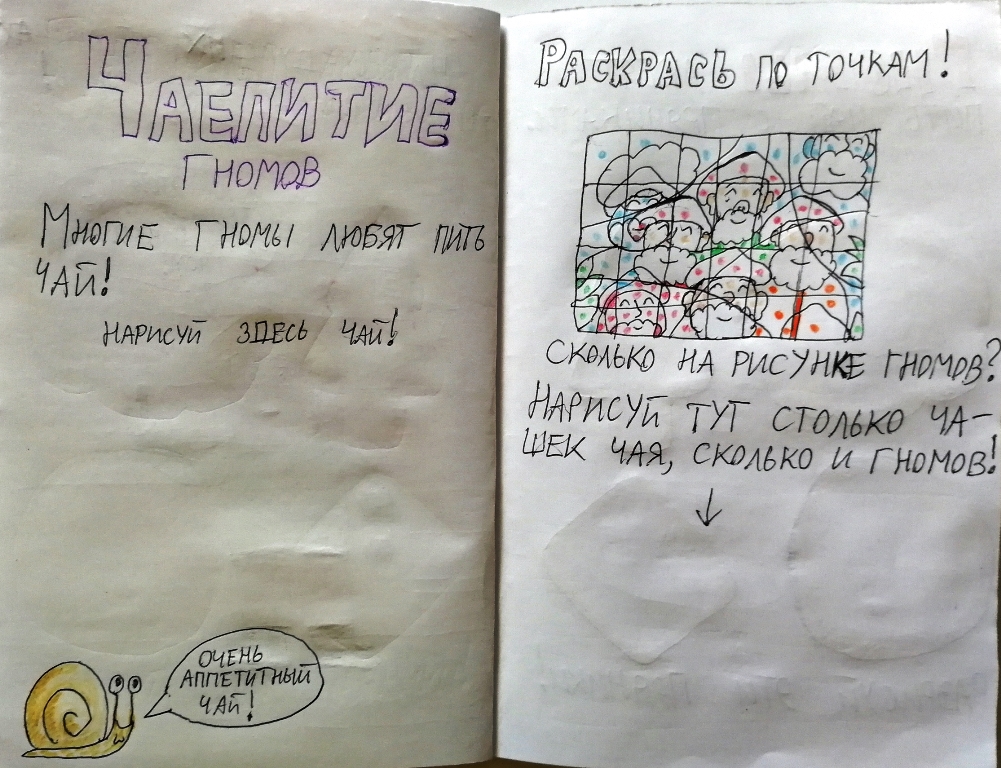 ЧАЕПИТИЕ
ГНОМОВ
МНОГИЕ ГНОМЫ ЛЮБЯТ ПИТЬ
ЧАЙ!
НАРИСУЙ ЗДЕСЬ ЧАЙ!
ОЧЕНЬ
АППЕТИТНЫЙ
ЧАЙ!
РАСКРАСЬ ПО ТОЧКАМ!
СКОЛЬКО НА РИСУНКЕ ГНОМОВ?
НАРИСУЙ ТУТ СТОЛЬКО ЧА-
ШЕК ЧАЯ, СКОЛЬКО И ГНОМОВ!